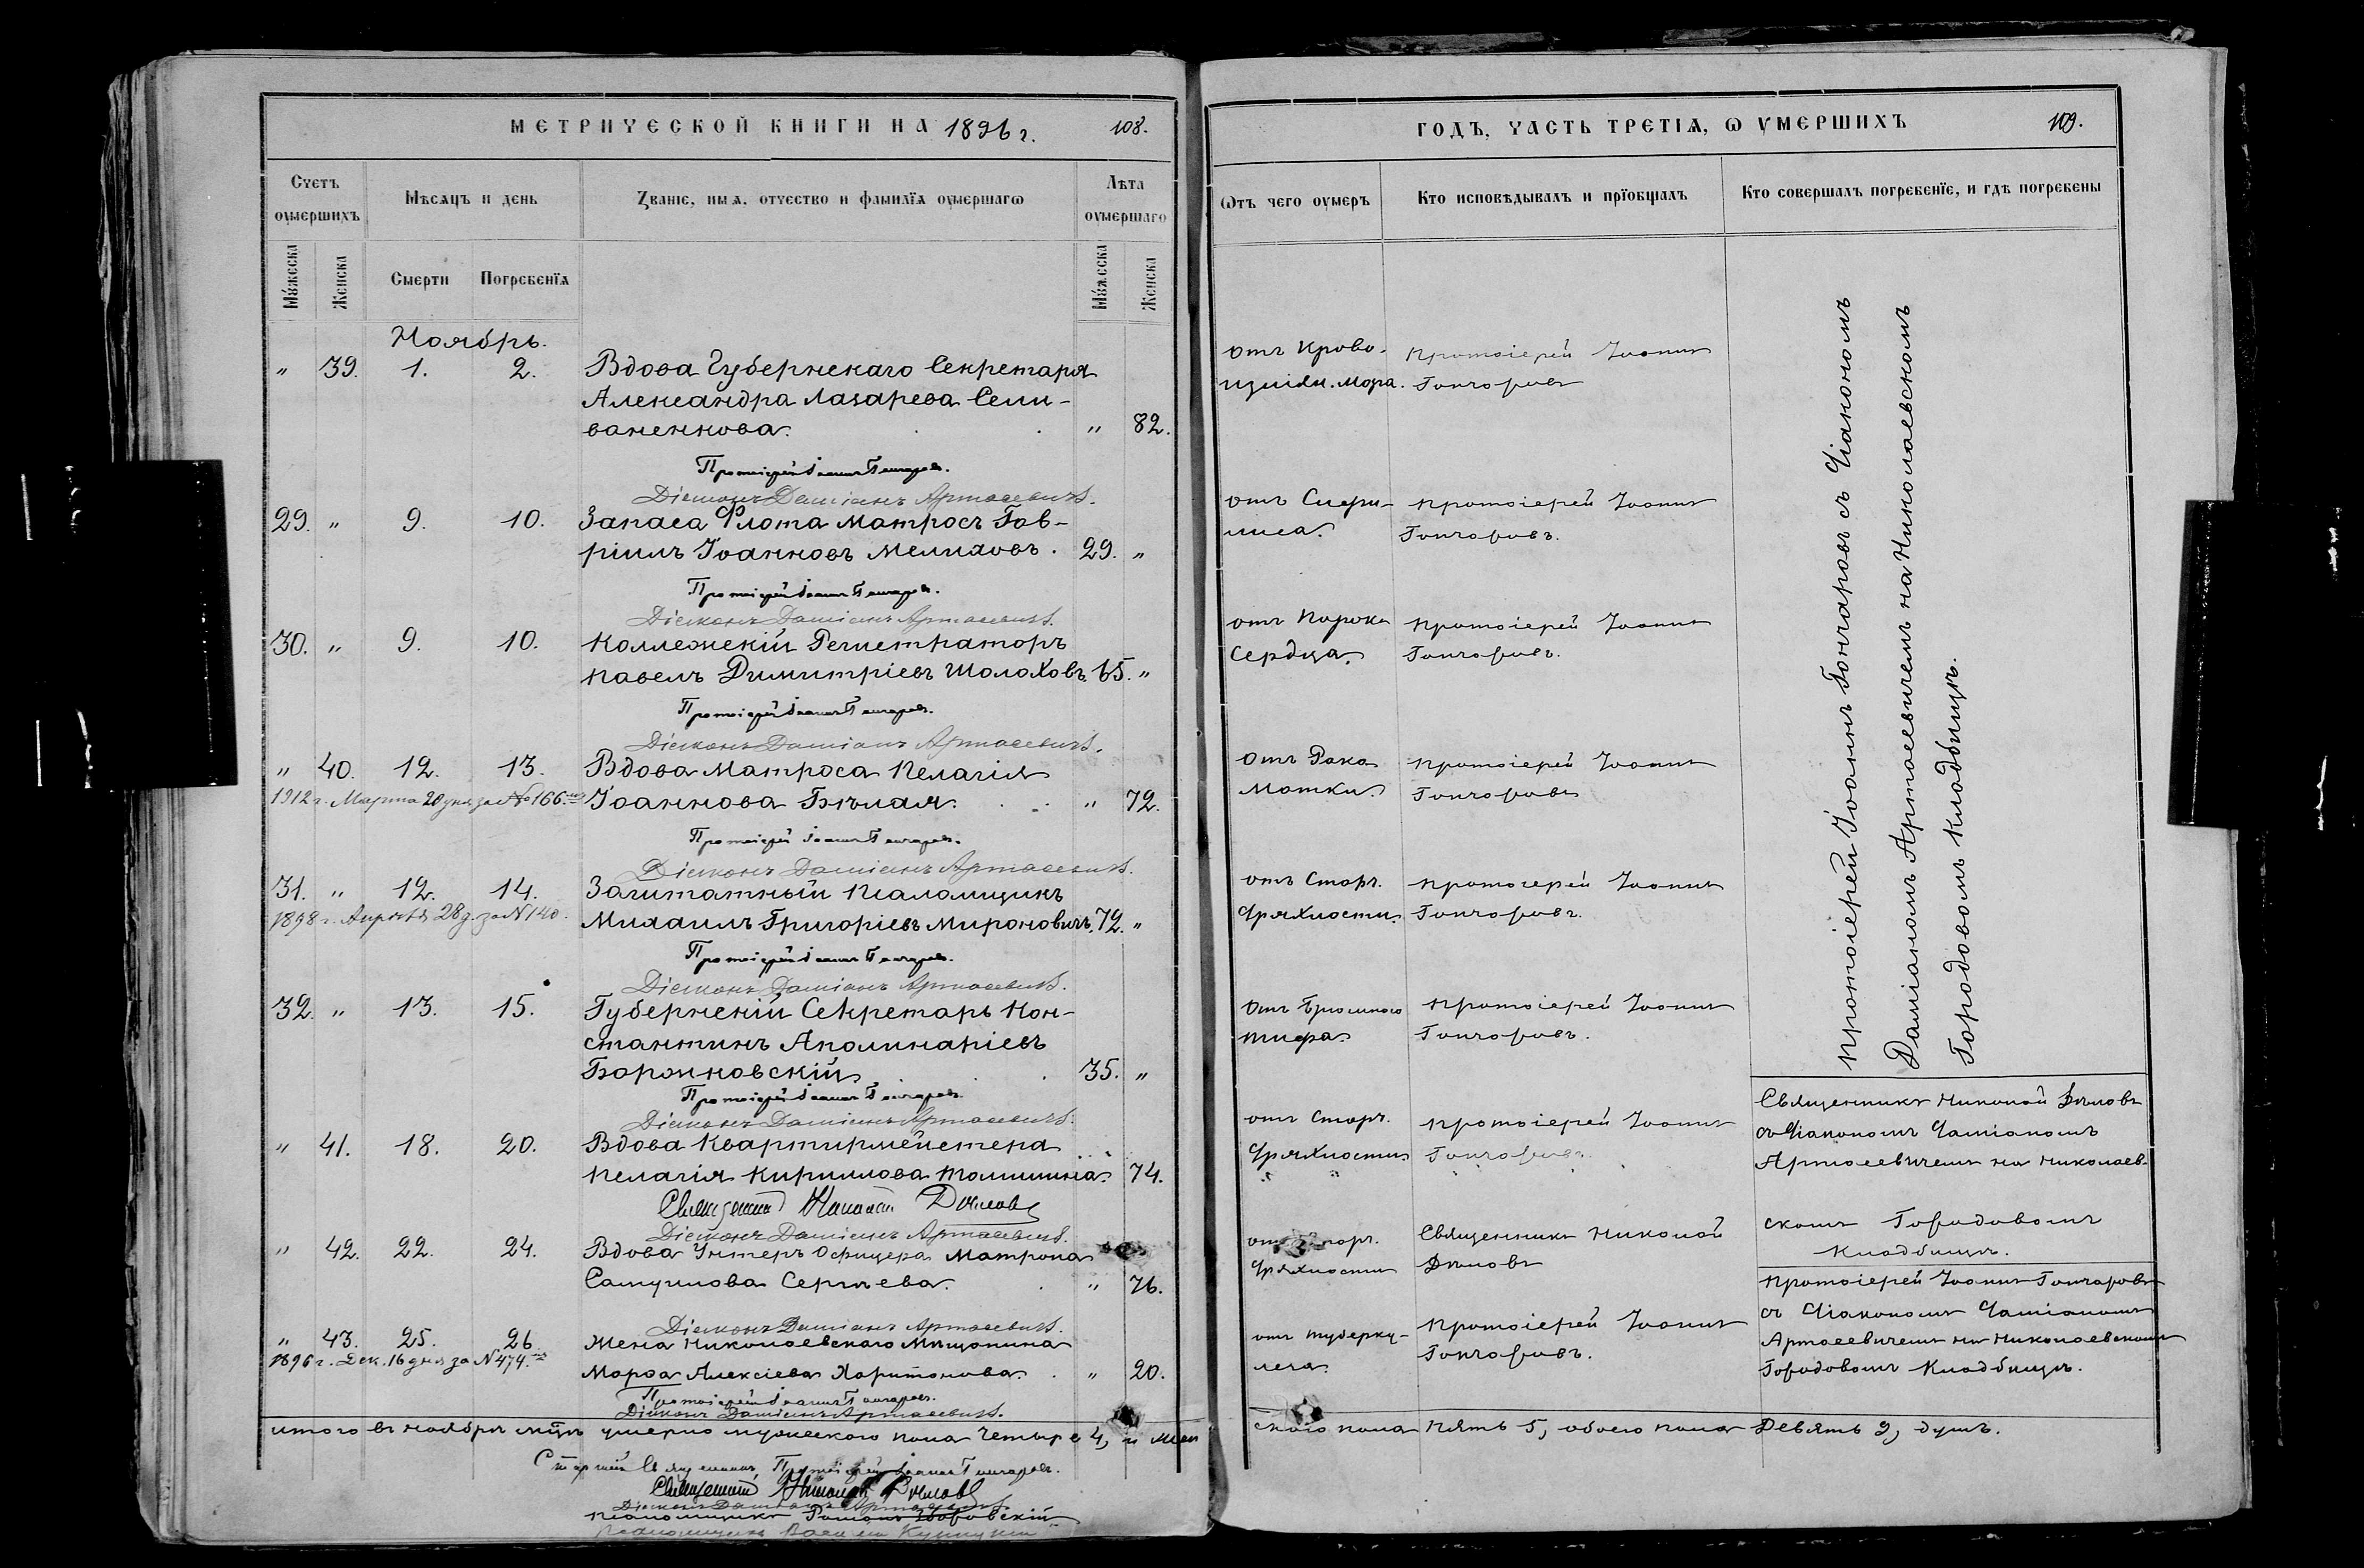 МЕТРИЧЕСКОЙ КНИГИ НА 1896 г. 108.
Счетъ оумершихъ
Мѣсяцъ и день
Званіе, имя, отчество и фамилія оумершагѡ
Лѣта оумершаго
Мужеска
Женска
Смерти
Погребенїя
Мужеска
Женска
Ноябрь.
" 39. 1. 2. Вдова Губернскаго Секретаря
Александра Лазарева Сели-
ваненкова. " 82.
Протоіерей Іоаннъ Гончаровъ.
Діаконъ Даміанъ Артасевичъ.
29. " 9. 10. Запаса Флота Матросъ Гав-
ріилъ Іоанновъ Мелиховъ. 29. "
Протоіерей Іоаннъ Гончаровъ.
Діаконъ Даміанъ Артасевичъ.
30. " 9. 10. Коллежскій Регистраторъ
Павелъ Димитріевъ Шолоховъ. 65. "
Протоіерей Іоаннъ Гончаровъ.
Діаконъ Даміанъ Артасевичъ.
" 40. 12. 13. Вдова Матроса Пелагія
1912 г. Марта 20 дня за № 166. Іоаннова Бѣлая. " 72.
Протоіерей Іоаннъ Гончаровъ.
Діаконъ Даміанъ Артасевичъ.
31. " 12. 14. Заштатный Псаломщикъ
1898 г. Апрѣля 28 д. за N 140. Михаилъ Григоріевъ Мироновичъ. 72. "
Протоіерей Іоаннъ Гончаровъ.
Діаконъ Даміанъ Артасевичъ.
32. " 13. 15. Губернскій Секретарь Кон-
стантинъ Аполинаріевъ
Боржковскій 35. "
Протоіерей Іоаннъ Гончаровъ.
Діаконъ Даміанъ Артасевичъ.
" 41. 18. 20. Вдова Квартирмейстера
Пелагія Кириллова 74.
Священникъ
Діаконъ Даміанъ Артасевичъ.
" 42. 22. 24. Вдова Унтеръ Офицера Матрона
Самуилова Сергѣева. " 76.
Діаконъ Даміанъ Артасевичъ.
" 43. 25. 26 Жена Николаевскаго Мѣщанина
1896 г. Дек. 16 дня за N 474. Марфа Алексіева Харитонова. " 20.
Протоіерей Іоаннъ Гончаровъ.
Діаконъ Даміанъ Артасевичъ.
Итого въ ноябрѣ мцѣ умерло мужескаго пола Четыре 4, и Жен
Старшій Священникъ Протоіерей Іоаннъ Гончаровъ.
Священникъ
Діаконъ Даміанъ Артасевичъ.
Псаломщикъ
Псаломщикъ
ГОДЪ, ЧАСТЬ ТРЕТІЯ, Ѡ УМЕРШИХЪ 109.
Ѡтъ чего оумеръ
Кто исповѣдывалъ и прїобщалъ
Кто совершалъ погребенїе, и гдѣ погребены
отъ Крово- Протоіерей Іоаннъ
Гончаровъ
отъ Протоіерей Іоаннъ
Гончаровъ.
отъ Порока Протоіерей Іоаннъ
Сердца. Гончаровъ.
отъ Рака Протоіерей Іоаннъ
Матки. Гончаровъ
отъ Старч. Протоіерей Іоаннъ
Дряхлости. Гончаровъ.
отъ Брюшного Протоіерей Іоаннъ
тифа. Гончаровъ.
отъ Старч. Протоіерей Іоаннъ
Дряхлости Гончаровъ.
Старч. Священникъ Никонай
Дряхлости
отъ туберку- Протоіерей Іоаннъ
леза. Гончаровъ.
Протоіерей Іоаннъ Гончаровъ съ Діакономъ
Даміаномъ Артасевичемъ на Николаевскомъ
Городовомъ Кладбищѣ.
Священникъ
съ Діакономъ Даміаномъ
Артасевичемъ на Николаев-
скомъ Городовомъ
Кладбищѣ.
Протоіерей Іоаннъ Гончаровъ
съ Діакономъ Даміаномъ
Артасевичемъ на Николаевскомъ
Городовомъ Кладбищѣ.
скаго пола Пять 5, обоего пола Девять 9, душъ.